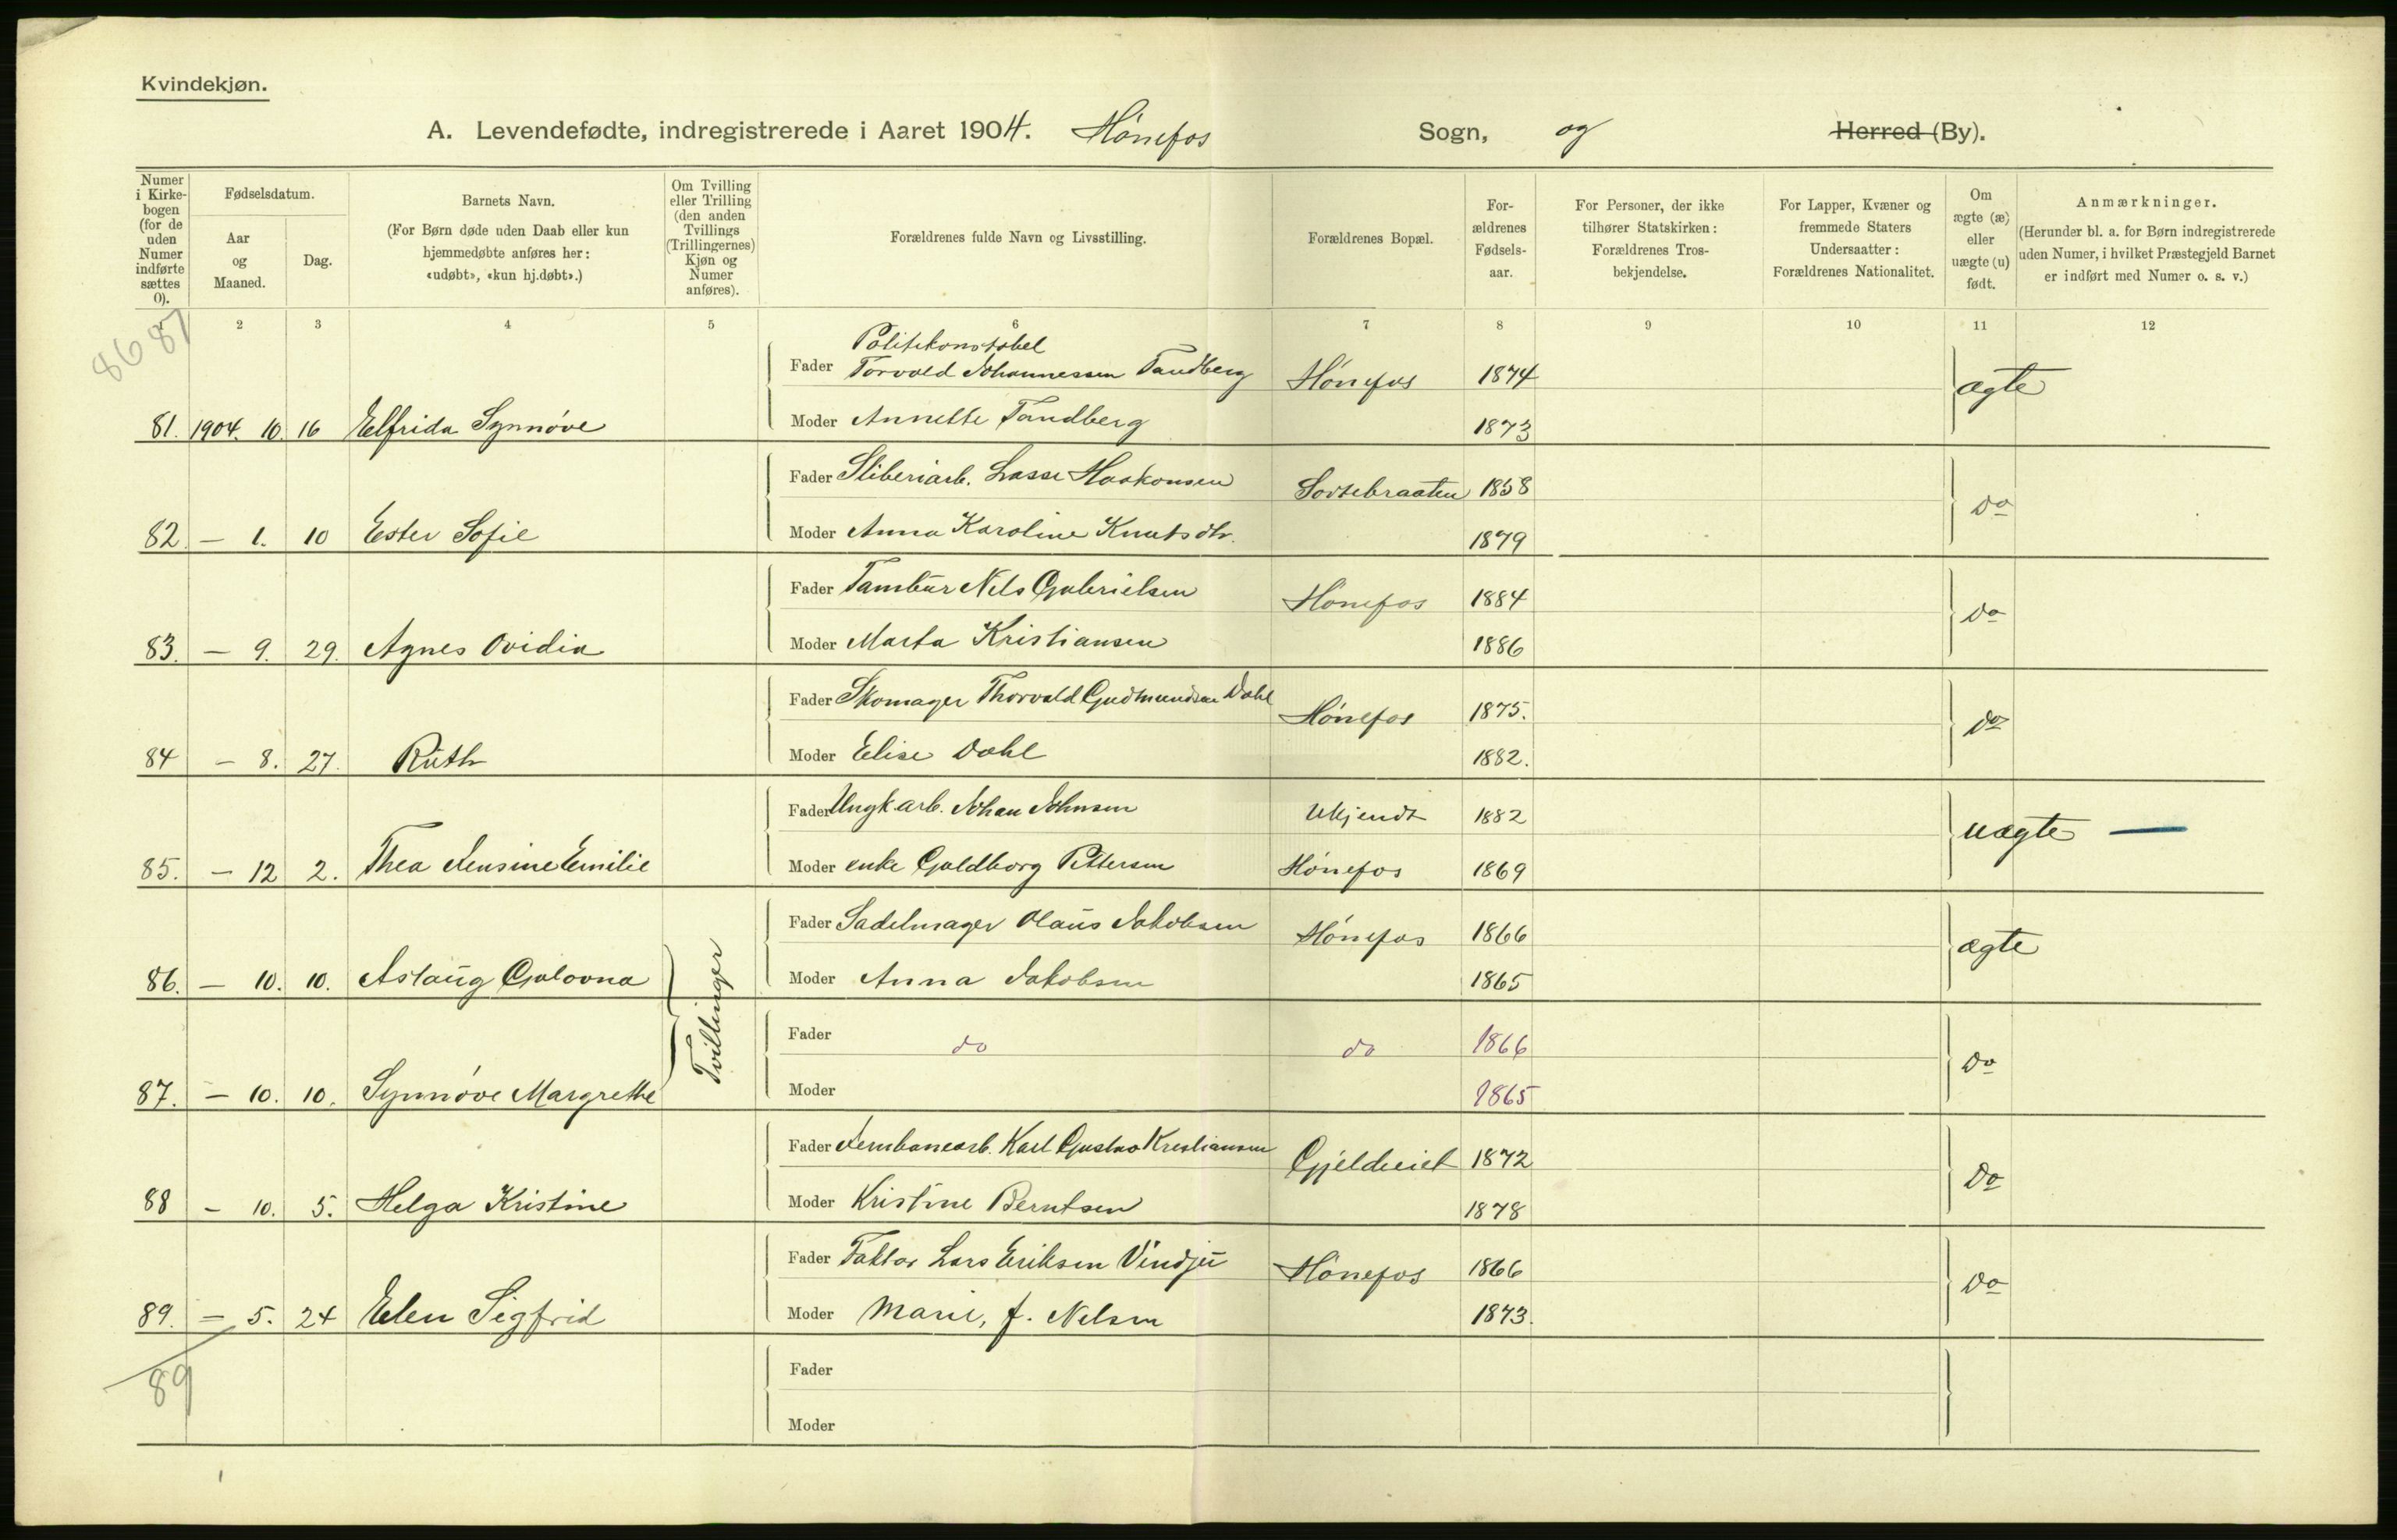 Kvindekjøn.
A. Levendefødte, indregistrerede i Aaret 1904. Hønefos Sogn, og Herred (By).
Numer i Kirkebogen (for de uden Numer indførte sættes 0).
Fødselsdatum.
Aar og Maaned.
Dag.
Barnets Navn.
(For Børn døde uden Daab eller kun hjemmedøbte anføres her: «udøbt», «kun hj.døbt».)
Om Tvilling eller Trilling (den anden Tvillings (Trillingernes) Kjøn og Numer anføres).
Forældrenes fulde Navn og Livsstilling.
Forældrenes Bopæl.
Forældrenes Fødselsaar.
For Personer, der ikke tilhører Statskirken: Forældrenes Trosbekjendelse.
For Lapper, Kvæner og fremmede Staters Undersaatter: Forældrenes Nationalitet.
Om ægte (æ) eller uægte (u) født.
Anmærkninger.
(Herunder bl. a. for Børn indregistrerede uden Numer, i hvilket Præstegjeld Barnet er indført med Numer o. s. v.)
2 3 4 5 6 7 8 9 10 11 12
86 87
Politikonstabel
Fader Torvald Johannessen Tandberg Hønefos 1874 ægte
81. 1904. 10. 16 Elfrida Synnøve Moder Annette Tandberg 1873
Fader Sliberiarb. Lasse Haakonsen Sortebraaten 1858 do
82. — 1. 10 Ester Sofie Moder Anna Karoline Knutsdtr. 1879
Fader Tambur Nils Gabrielsen Hønefos 1884 do
83. — 9. 29. Agnes Ovidia Moder Marta Kristiansen 1886
Fader Skomager Thorvald Gudmundsen Dahl Hønefos 1875. do
84 — 8. 27. Ruth Moder Elise Dahl 1882.
Fader Ungk. arb. Johan Johnsen Ukjendt 1882 uægte —
85. — 12 2. Thea Jensine Emilie Moder enke Goldborg Pettersen Hønefos 1869
Fader Sadelmager Olaus Jakobsen Hønefos 1866 ægte
86. — 10. 10. Aslaug Galovna Tvillinger Moder Anna Jakobsen 1865
Fader do do 1866 do
87. — 10. 10. Synnøve Margrethe Moder 1865
Fader Jernbanearb. Karl Gustav Kristiansen 1872 do
88 — 10. 5. Helga Kristine Moder Kristine Berntsen 1878
Fader Faktor Lars Eriksen Vindju Hønefos 1866 do
89. — 5. 24 Elen Sigfrid Moder Marie, f. Nelsen 1873.
89
Fader
Moder